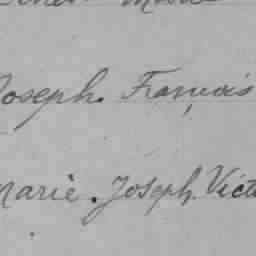 Joseph. François
Marie. Joseph. Vict